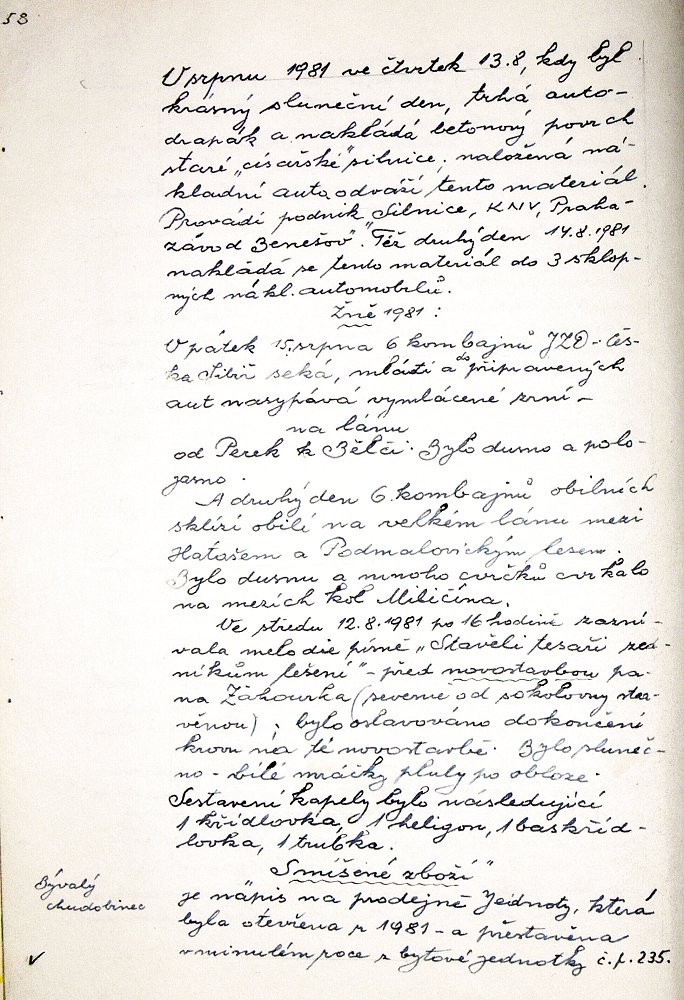 58
V srpnu 1981 ve čtvrtek 13.8, kdy byl
krásný sluneční den, trhá auto-
drapák a nakládá betonový povrch
staré „císařské" silnice; naložená ná-
kladní auta odváží tento materiál.
Provádí podnik „Silnice, KNV, Praha-
závod Benešov". Též druhý den 14.8.1981
nakládá se tento materiál do 3 sklop-
ných nákl. automobilů.
Žně 1981:
V pátek 15. srpna 6 kombajnů JZD - Čes-
ká Sibiř seká, mlátí a do připravených
aut nasypává vymlácené zrní -
na lánu
od Perek k Bělči. Bylo dusno a polo-
jasno.
A druhý den 6 kombajnů obilních
sklízí obilí na velkém lánu mezi
Hatašem a Podmalovickým lesem.
Bylo dusnu a mnoho cvrčků cvrkalo
na mezích kol Miličína.
Ve středu 12.8.1981 po 16 hodině zazní-
vala melodie písně „Stavěli tesaři zed-
níkům lešení" - před novostavbou pa-
na Žákourka (severně od sokolovny
); bylo oslavováno dokončení
krovu na té novostavbě. Bylo sluneč-
no - bílé mráčky pluly po obloze.
Sestavení kapely bylo následující
1 křídlovka, 1 heligon, 1 baskříd-
lovka, 1 trubka.
„Smíšené zboží"
Bývalý
chudobinec
je nápis na prodejně Jednoty, která
byla otevřena r 1981 - a přestavěna
v minulém roce z bytové jednotky č.p. 235.
v